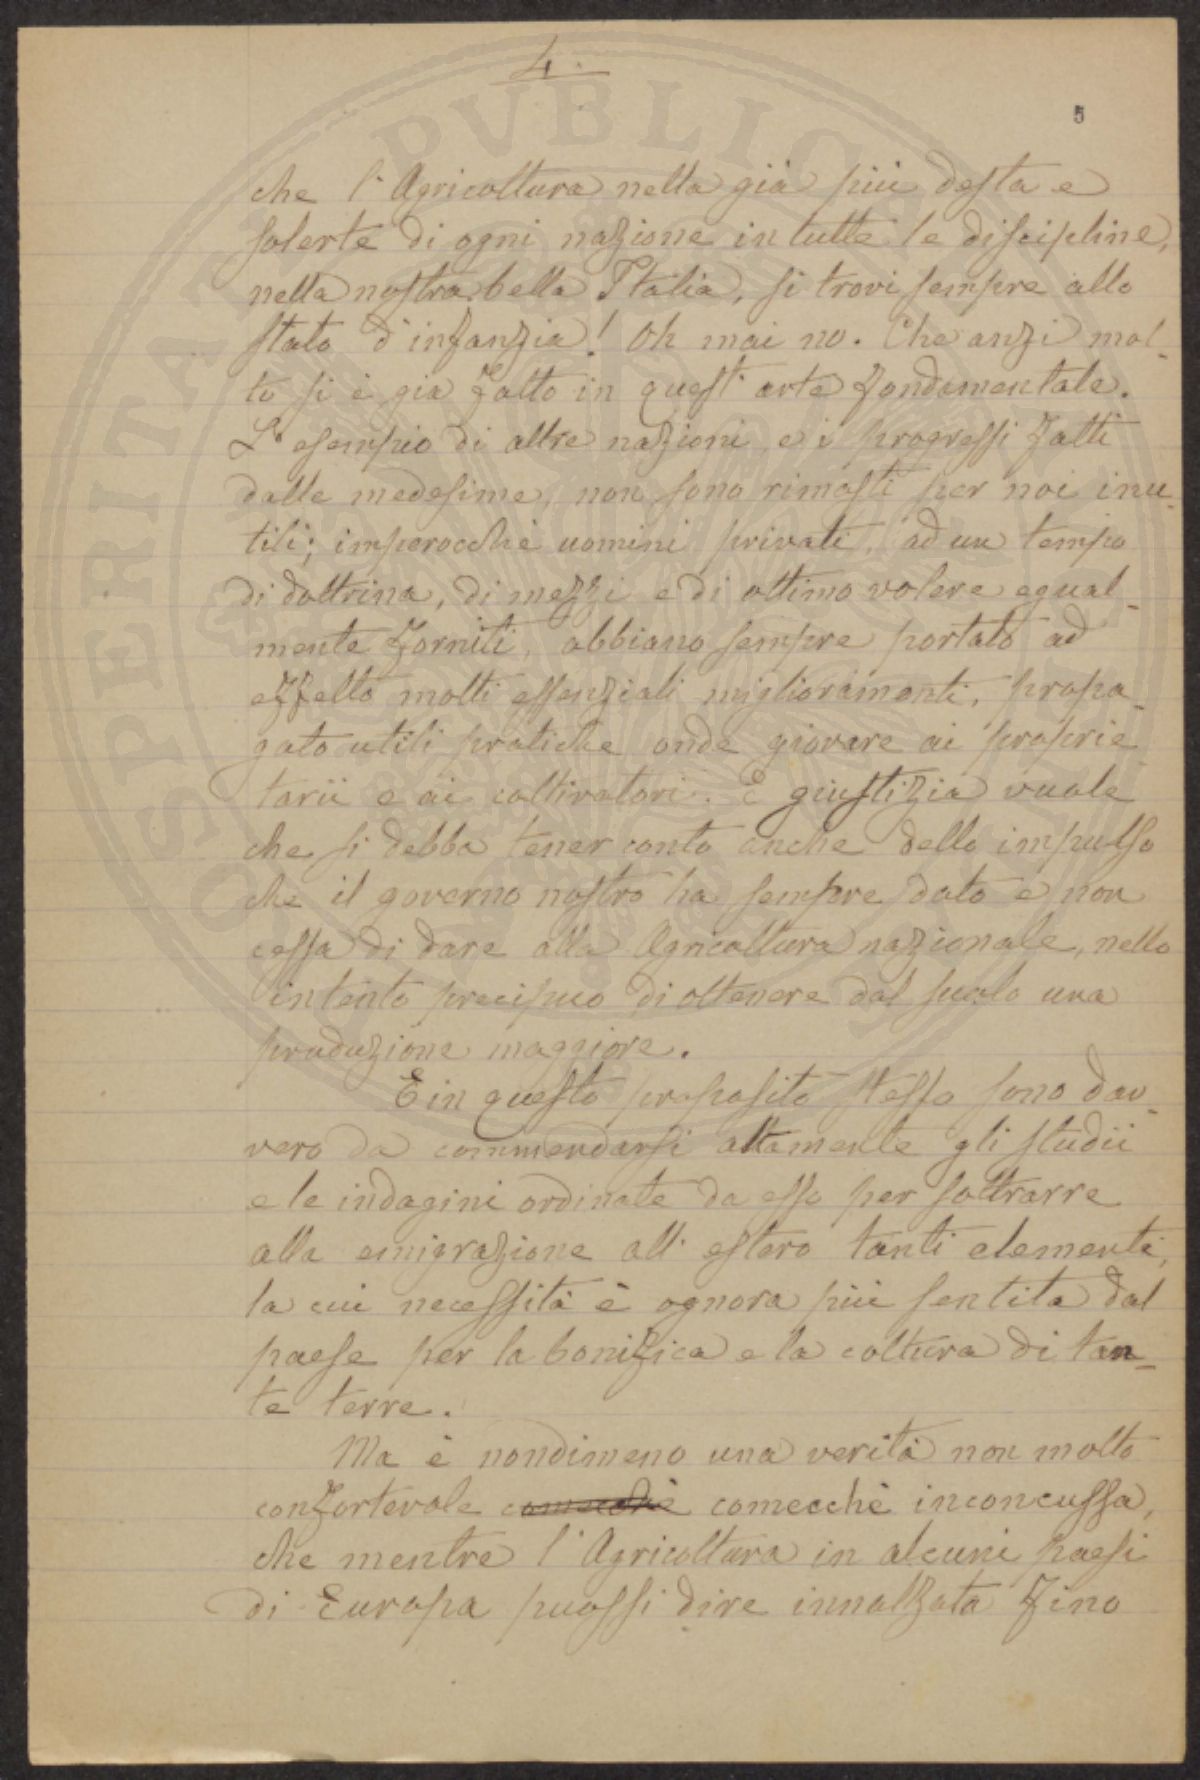 4.
5
che l'Agricoltura nella già più desta e
solerte di ogni nazione in tutte le discipline,
nella nostra bella Italia, si trovi sempre allo
stato d'infanzia! Oh mai no. Che anzi mol-
to si è già fatto in quest'arte fondamentale.
L'esempio di altre nazioni, e i progressi fatti
dalle medesime, non sono rimasti per noi inu-
tili; imperocchè uomini privati, ad un tempo
di dottrina, di mezzi e di ottimo volere egual-
mente forniti, abbiano sempre portato ad
effetto molti essenziali miglioramenti, propa-
gato utili pratiche onde giovare ai proprie-
tarii e ai coltivatori. E giustizia vuole
che si debba tener conto anche dello impulso
che il governo nostro ha sempre dato e non
cessa di dare alla Agricoltura nazionale, nello
intento precipuo di ottenere dal suolo una
produzione maggiore.
E in questo proposito stesso sono dav-
vero da commendarsi altamente gli studii
e le indagini ordinate da esso per sottrarre
alla emigrazione all'estero tanti elementi,
la cui necessità è ognora più sentita dal
paese per la bonifica e la coltura di tan-
te terre.
Ma è nondimeno una verità non molto
confortevole comecchè comecchè inconcussa,
che mentre l'Agricoltura in alcuni paesi
di Europa puossi dire innalzata fino
PROSPERITATI PVBLICAE